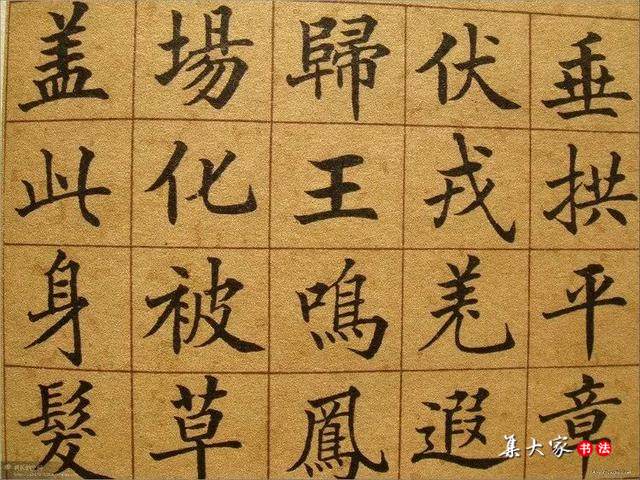 垂拱平章
伏戎羌遐
歸王鳴鳳
場化被草
盖此身髮
集大家书法